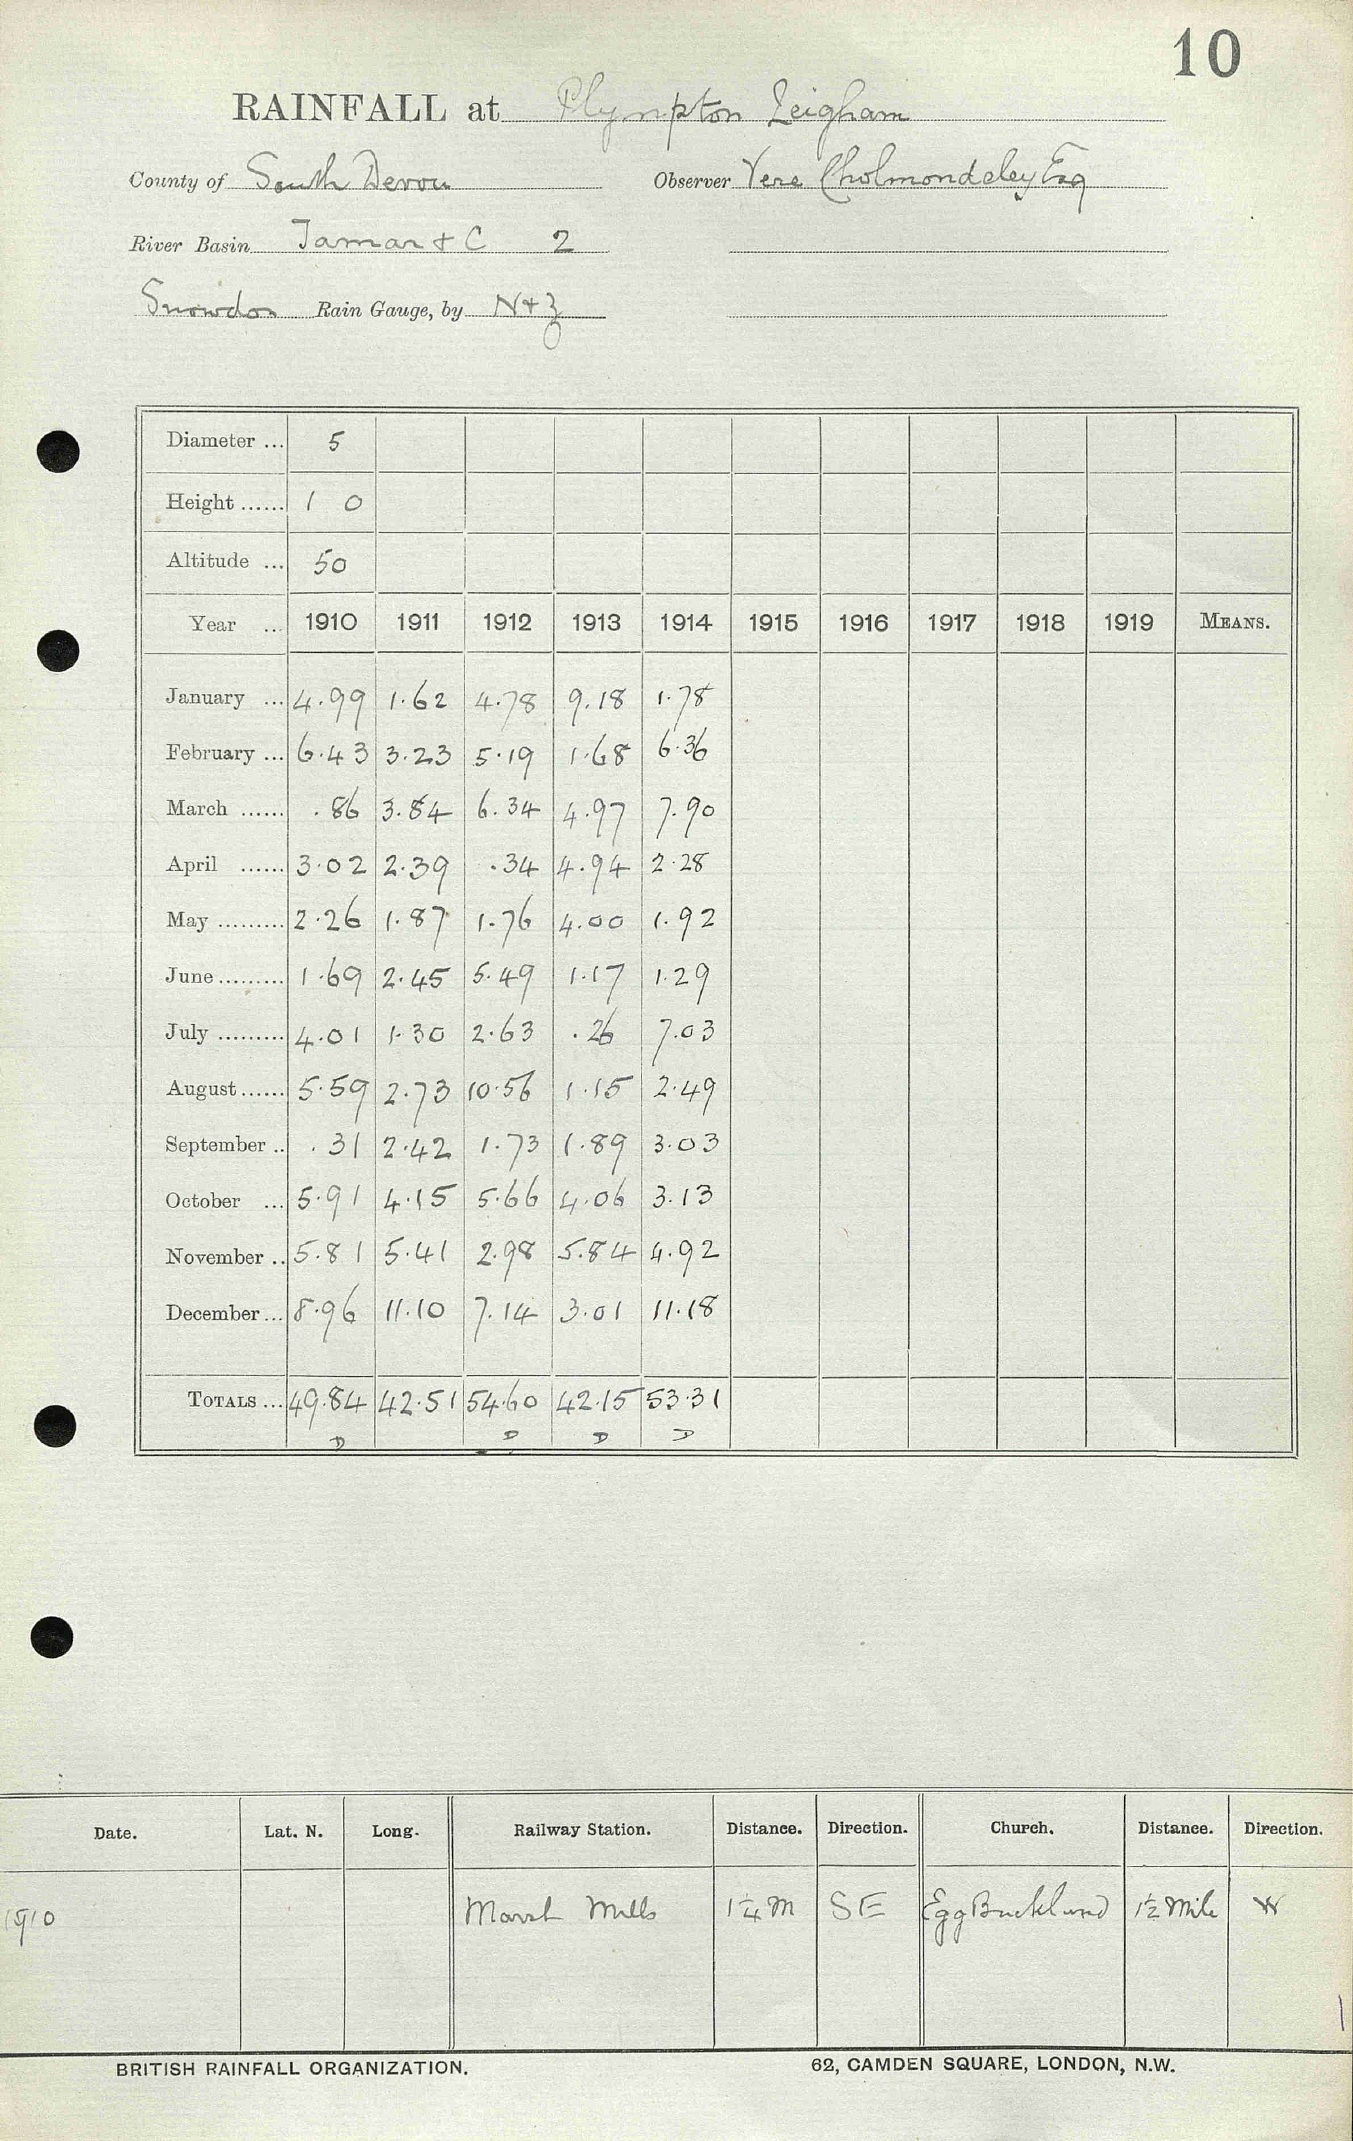 10
RAINFALL at Plympton Leigham
County of South Devon Observer Vere Cholmondeley Esq
River Basin Tamar & C 2
Snowdon Rain Gauge, by N & Z
Diameter ... 5
Height ...... 1 0
Altitude ... 50
Year ... 1910 1911 1912 1913 1914 1915 1916 1917 1918 1919 MEANS.
January ... 4.99 1.62 4.78 9.18 1.78
February ... 6.43 3.23 5.19 1.68 6.36
March ...... .86 3.84 6.34 4.97 7.90
April ...... 3.02 2.39 .34 4.94 2.28
May ......... 2.26 1.87 1.76 4.00 1.92
June ......... 1.69 2.45 5.49 1.17 1.29
July ......... 4.01 1.30 2.63 .26 7.03
August ...... 5.59 2.73 10.56 1.15 2.49
September .. .31 2.42 1.73 1.89 3.03
October ... 5.91 4.15 5.66 4.06 3.13
November .. 5.81 5.41 2.98 5.84 4.92
December ... 8.96 11.10 7.14 3.01 11.18
TOTALS ... 49.84 42.51 54.60 42.15 53.31
D D D D
Date. Lat. N. Long. Railway Station. Distance. Direction. Church. Distance. Direction.
1910 Marsh Mills 1¼ M SE Egg Buckland 1½ Mile W
BRITISH RAINFALL ORGANIZATION. 62, CAMDEN SQUARE, LONDON, N.W.